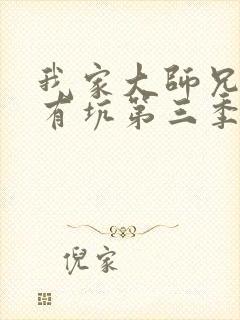 我家大师兄
有坑第三季
倪家